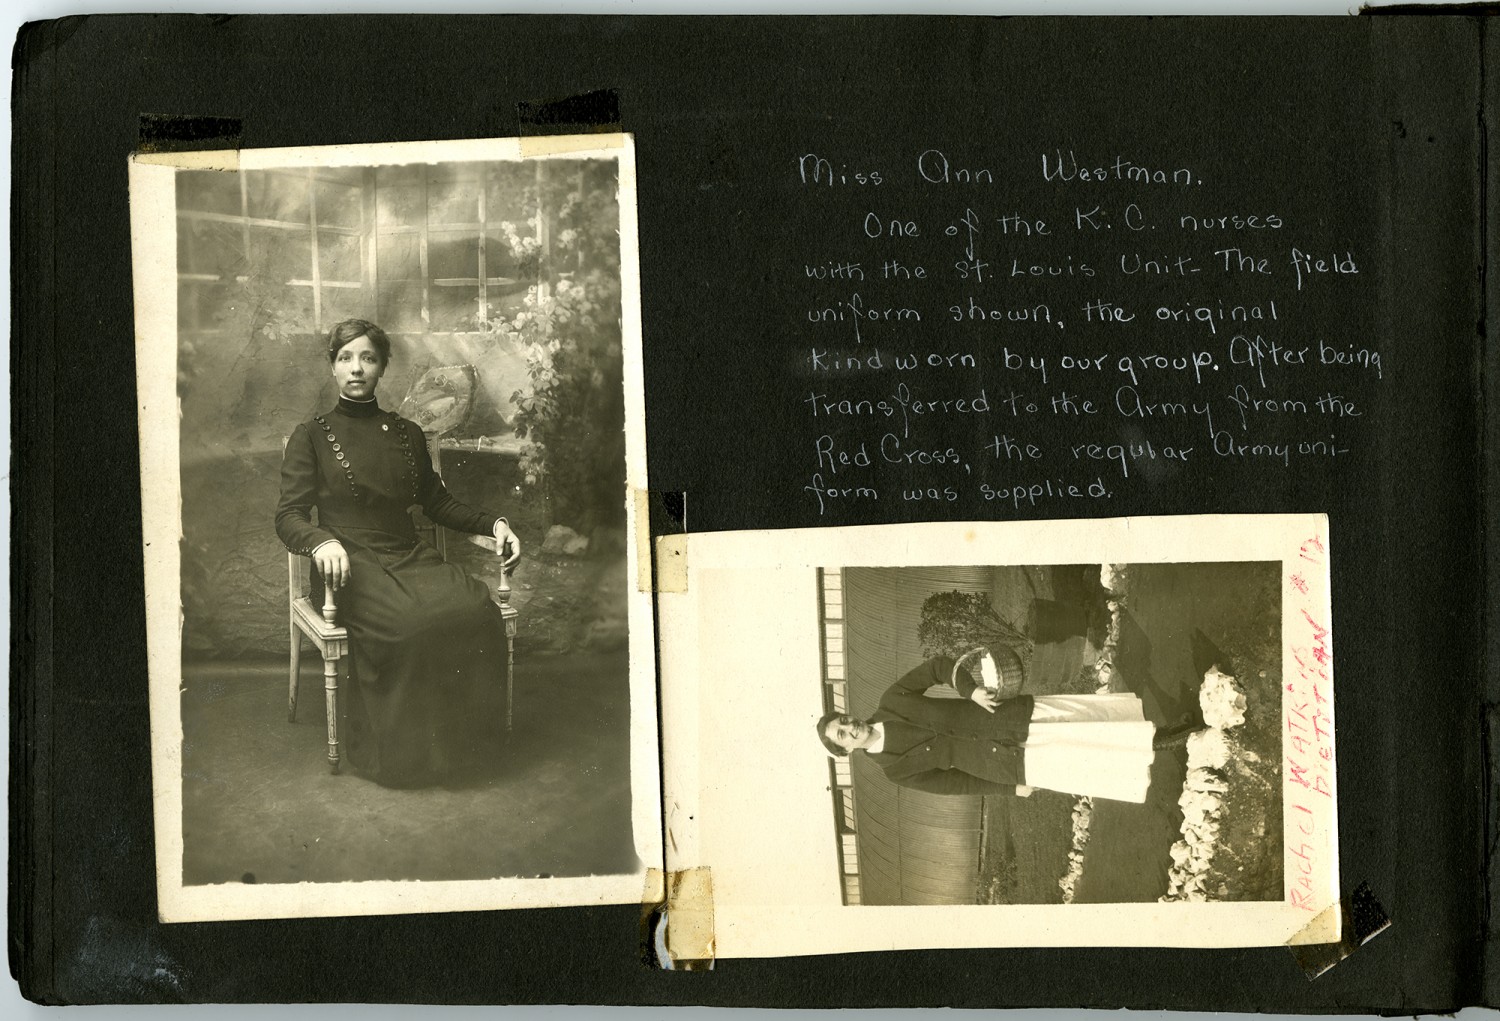 Miss Ann Westman.
One of the K. C. nurses
with the St. Louis Unit- The field
uniform shown, the original
kind worn by our group. After being
transferred to the Army from the
Red Cross, the regular Army uni-
form was supplied.
Rachel WATKINS # 12
DIETITIAN